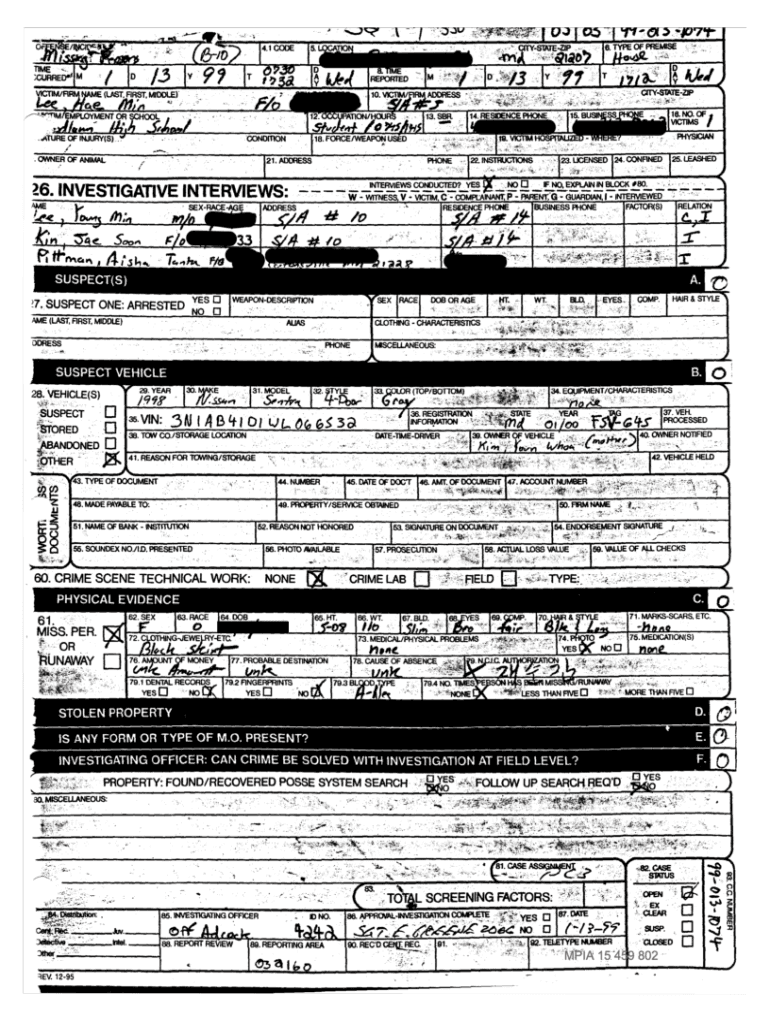 99-013-1074
OFFENSE/INCIDENT Missing Person (B-10) 4.1 CODE 5. LOCATION CITY-STATE-ZIP md 21207 6. TYPE OF PREMISE House
TIME OCCURRED M 1 D 13 Y 99 T 0730 1732 DAY Wed 8. TIME REPORTED M 1 D 13 Y 99 T 1712 DAY Wed
VICTIM/FIRM NAME (LAST, FIRST, MIDDLE) Lee, Hae Min F/O 10. VICTIM/FIRM ADDRESS S/A #5 CITY-STATE-ZIP
VICTIM/EMPLOYMENT OR SCHOOL High School 12. OCCUPATION/HOURS Student 13. SBR. 14. RESIDENCE PHONE 15. BUSINESS PHONE 16. NO. OF VICTIMS 1
NATURE OF INJURY(S) CONDITION 18. FORCE/WEAPON USED 19. VICTIM HOSPITALIZED - WHERE? PHYSICIAN
OWNER OF ANIMAL 21. ADDRESS PHONE 22. INSTRUCTIONS 23. LICENSED 24. CONFINED 25. LEASHED
26. INVESTIGATIVE INTERVIEWS: INTERVIEWS CONDUCTED? YES X NO IF NO, EXPLAIN IN BLOCK #80.
W - WITNESS, V - VICTIM, C - COMPLAINANT, P - PARENT, G - GUARDIAN, I - INTERVIEWED
NAME SEX-RACE-AGE ADDRESS RESIDENCE PHONE BUSINESS PHONE FACTOR(S) RELATION
Lee, Young Min m/o S/A #10 S/A #14 C, I
Kin, Jae Soon F/o 33 S/A #10 S/A #14 I
Pittman, Aisha Tanta F/B 21228 I
SUSPECT(S) A. 0
27. SUSPECT ONE: ARRESTED YES NO WEAPON-DESCRIPTION SEX RACE DOB OR AGE HT. WT. BLD. EYES COMP. HAIR & STYLE
NAME (LAST, FIRST, MIDDLE) ALIAS CLOTHING - CHARACTERISTICS
ADDRESS PHONE MISCELLANEOUS:
SUSPECT VEHICLE B. 0
28. VEHICLE(S) 29. YEAR 1998 30. MAKE Nissan 31. MODEL Sentra 32. STYLE 4-Door 33. COLOR (TOP/BOTTOM) Gray 34. EQUIPMENT/CHARACTERISTICS none
SUSPECT STORED 35. VIN: 3N1AB41D1WL066532 36. REGISTRATION INFORMATION STATE md YEAR 01/00 TAG FSV-645 37. VEH. PROCESSED
ABANDONED 38. TOW CO./STORAGE LOCATION DATE-TIME-DRIVER 39. OWNER OF VEHICLE Kim, Youn Whon (mother) 40. OWNER NOTIFIED
OTHER X 41. REASON FOR TOWING/STORAGE 42. VEHICLE HELD
WORT. DOCUMENTS 43. TYPE OF DOCUMENT 44. NUMBER 45. DATE OF DOC'T 46. AMT. OF DOCUMENT 47. ACCOUNT NUMBER
48. MADE PAYABLE TO: 49. PROPERTY/SERVICE OBTAINED 50. FIRM NAME
51. NAME OF BANK - INSTITUTION 52. REASON NOT HONORED 53. SIGNATURE ON DOCUMENT 54. ENDORSEMENT SIGNATURE
55. SOUNDEX NO./I.D. PRESENTED 56. PHOTO AVAILABLE 57. PROSECUTION 58. ACTUAL LOSS VALUE 59. VALUE OF ALL CHECKS
60. CRIME SCENE TECHNICAL WORK: NONE X CRIME LAB FIELD TYPE:
PHYSICAL EVIDENCE C. 0
61. MISS. PER. X OR RUNAWAY 62. SEX F 63. RACE O 64. DOB 65. HT. 5-08 66. WT. 110 67. BLD. Slim 68. EYES Bro 69. COMP. fair 70. HAIR & STYLE Blk Long 71. MARKS-SCARS, ETC. none
72. CLOTHING-JEWELRY-ETC. Black Skirt 73. MEDICAL/PHYSICAL PROBLEMS none 74. PHOTO YES X NO 75. MEDICATION(S) none
76. AMOUNT OF MONEY unk Amount 77. PROBABLE DESTINATION unk 78. CAUSE OF ABSENCE unk 79. N.C.I.C. AUTHORIZATION
79.1 DENTAL RECORDS YES NO X 79.2 FINGERPRINTS YES NO X 79.3 BLOOD TYPE 79.4 NO. TIMES PERSON HAS BEEN MISSING/RUNAWAY NONE X LESS THAN FIVE MORE THAN FIVE
STOLEN PROPERTY D. 0
IS ANY FORM OR TYPE OF M.O. PRESENT? E. 0
INVESTIGATING OFFICER: CAN CRIME BE SOLVED WITH INVESTIGATION AT FIELD LEVEL? F. 0
PROPERTY: FOUND/RECOVERED POSSE SYSTEM SEARCH YES X NO FOLLOW UP SEARCH REQ'D YES X NO
80. MISCELLANEOUS:
81. CASE ASSIGNMENT 82. CASE STATUS
83. TOTAL SCREENING FACTORS: OPEN EX CLEAR SUSP. CLOSED
93. CC NUMBER 99-013-1074
84. Distribution: Cent. Rec. Juv. Detective Intel. Other
85. INVESTIGATING OFFICER Off Adcock ID NO. 4242 86. APPROVAL-INVESTIGATION COMPLETE YES NO SGT. E. GREENE 2066 87. DATE 1-13-99
88. REPORT REVIEW 89. REPORTING AREA 032160 90. REC'D CENT. REC. 91. 92. TELETYPE NUMBER
MPIA 15 459 802
REV. 12-95